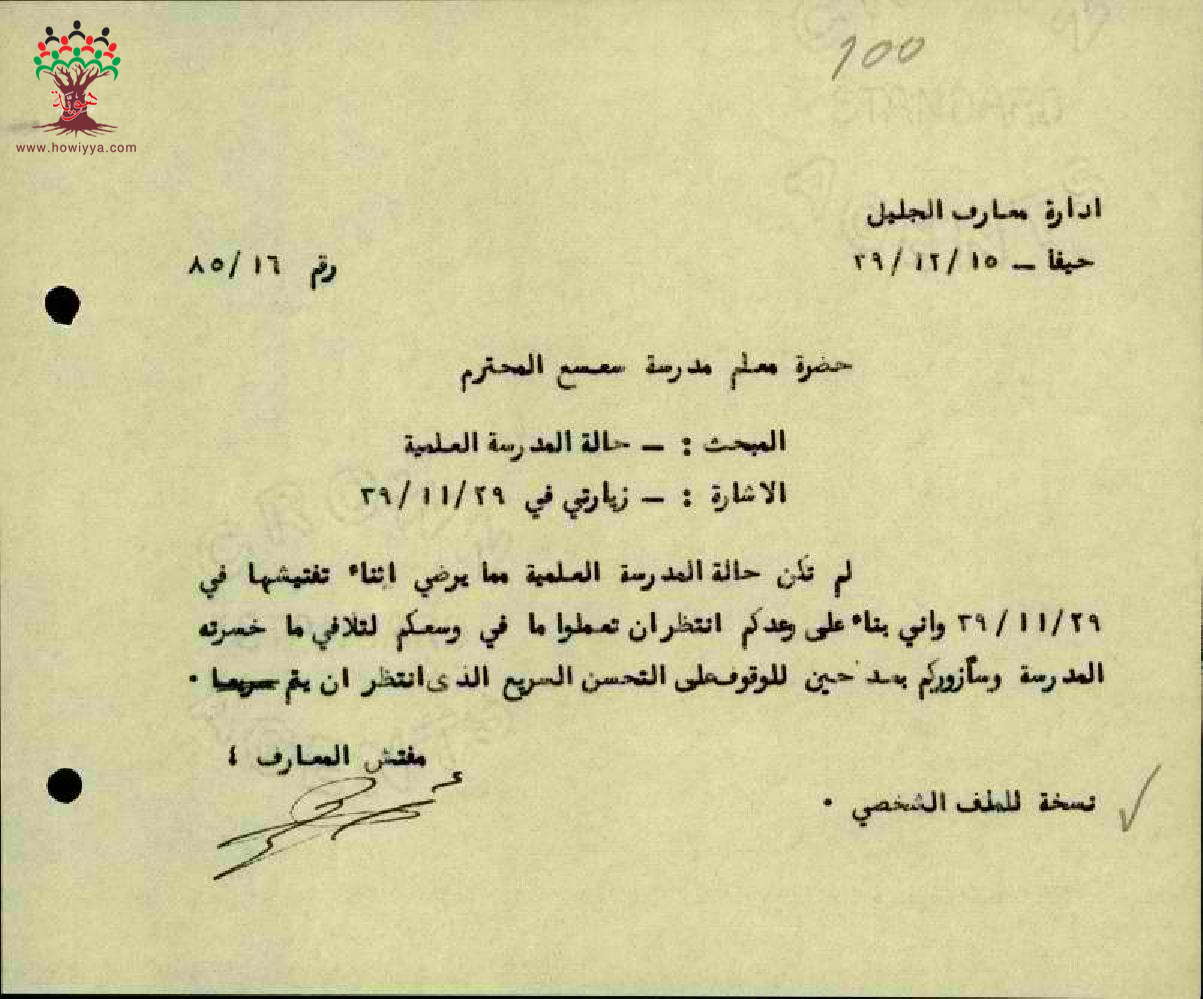 هوية
www.howiyya.com
100
ادارة معارف الجليل
حيفا ـ ١٥ /١٢ /٣٩
رقم ١٦ /٨٥
حضرة معلم مدرسة سعسع المحترم
المبحث : ـ حالة المدرسة العلمية
الاشارة : ـ زيارتي في ٢٩ /١١ /٣٩
لم تكن حالة المدرسة العلمية مما يرضي اثناء تفتيشها في
٢٩ /١١ /٣٩ واني بناء على وعدكم انتظران تعملوا ما في وسعكم لتلافي ما خسرته
المدرسة وسأزوركم بعد حين للوقوف على التحسن السريع الذى انتظر ان يتم سريعا ٠
مفتش المعارف ٤
نسخة للملف الشخصي ٠